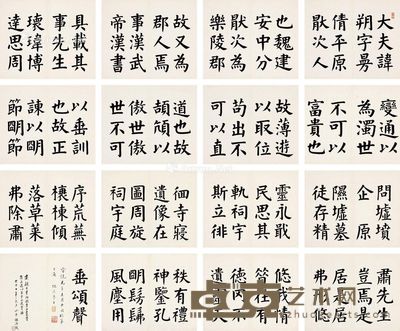 大夫諱
朔字曼
倩平原
厭次人
也魏建
安中分
厭次為
樂陵郡
故又為
郡人焉
事漢武
帝漢書
具載其
事先生
瓌瑋博
達思周
變通以
為濁世
不可以
富貴也
故薄遊
以取位
苟出不
可以直
道也故
頡頏以
傲世傲
世不可
以垂訓
也故正
諫以明
節明節
問墟墳
企原
隰墟墓
徒存精
靈永戢
民思其
軌祠宇
斯立徘
徊寺寢
遺像在
圖周旋
祠宇庭
序荒蕪
榱棟傾
落草萊
弗除肅
肅先生
豈焉是
居是居
弗形悠
悠我情
昔在有
德罔不
遺靈天
秩有禮
神鑒孔
明髣髴
風塵用
垂頌聲